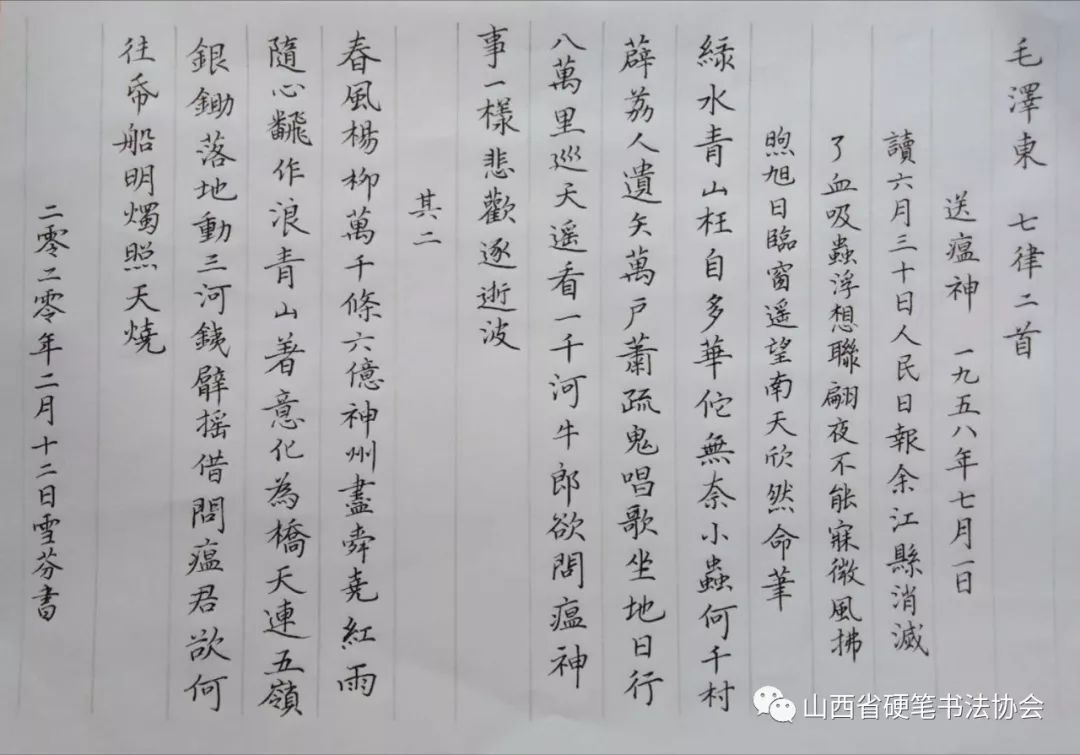 毛澤東 七律二首
送瘟神 一九五八年七月一日
讀六月三十日人民日報余江縣消滅
了血吸蟲浮想聯翩夜不能寐微風拂
煦旭日臨窗遥望南天欣然命筆
綠水青山枉自多華佗無奈小蟲何千村
薜荔人遺矢萬戶蕭疏鬼唱歌坐地日行
八萬里巡天遥看一千河牛郎欲問瘟神
事一樣悲歡逐逝波
其二
春風楊柳萬千條六億神州盡舜堯紅雨
隨心飜作浪青山著意化為橋天連五嶺
銀鋤落地動三河鐵臂摇借問瘟君欲何
往帋船明燭照天燒
二零二零年二月十二日雪芬書
山西省硬笔书法协会